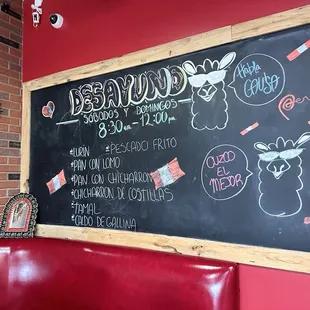 DESAYUNO
SÁBADOS Y DOMINGOS
8:30 AM - 12:00 PM
LURIN
PESCADO FRITO
PAN CON LOMO
PAN CON CHICHARRON
CHICHARRON DE COSTILLAS
TAMAL
CALDO DE GALLINA
Habla
CAUSA
CUZCO
EL MEJOR